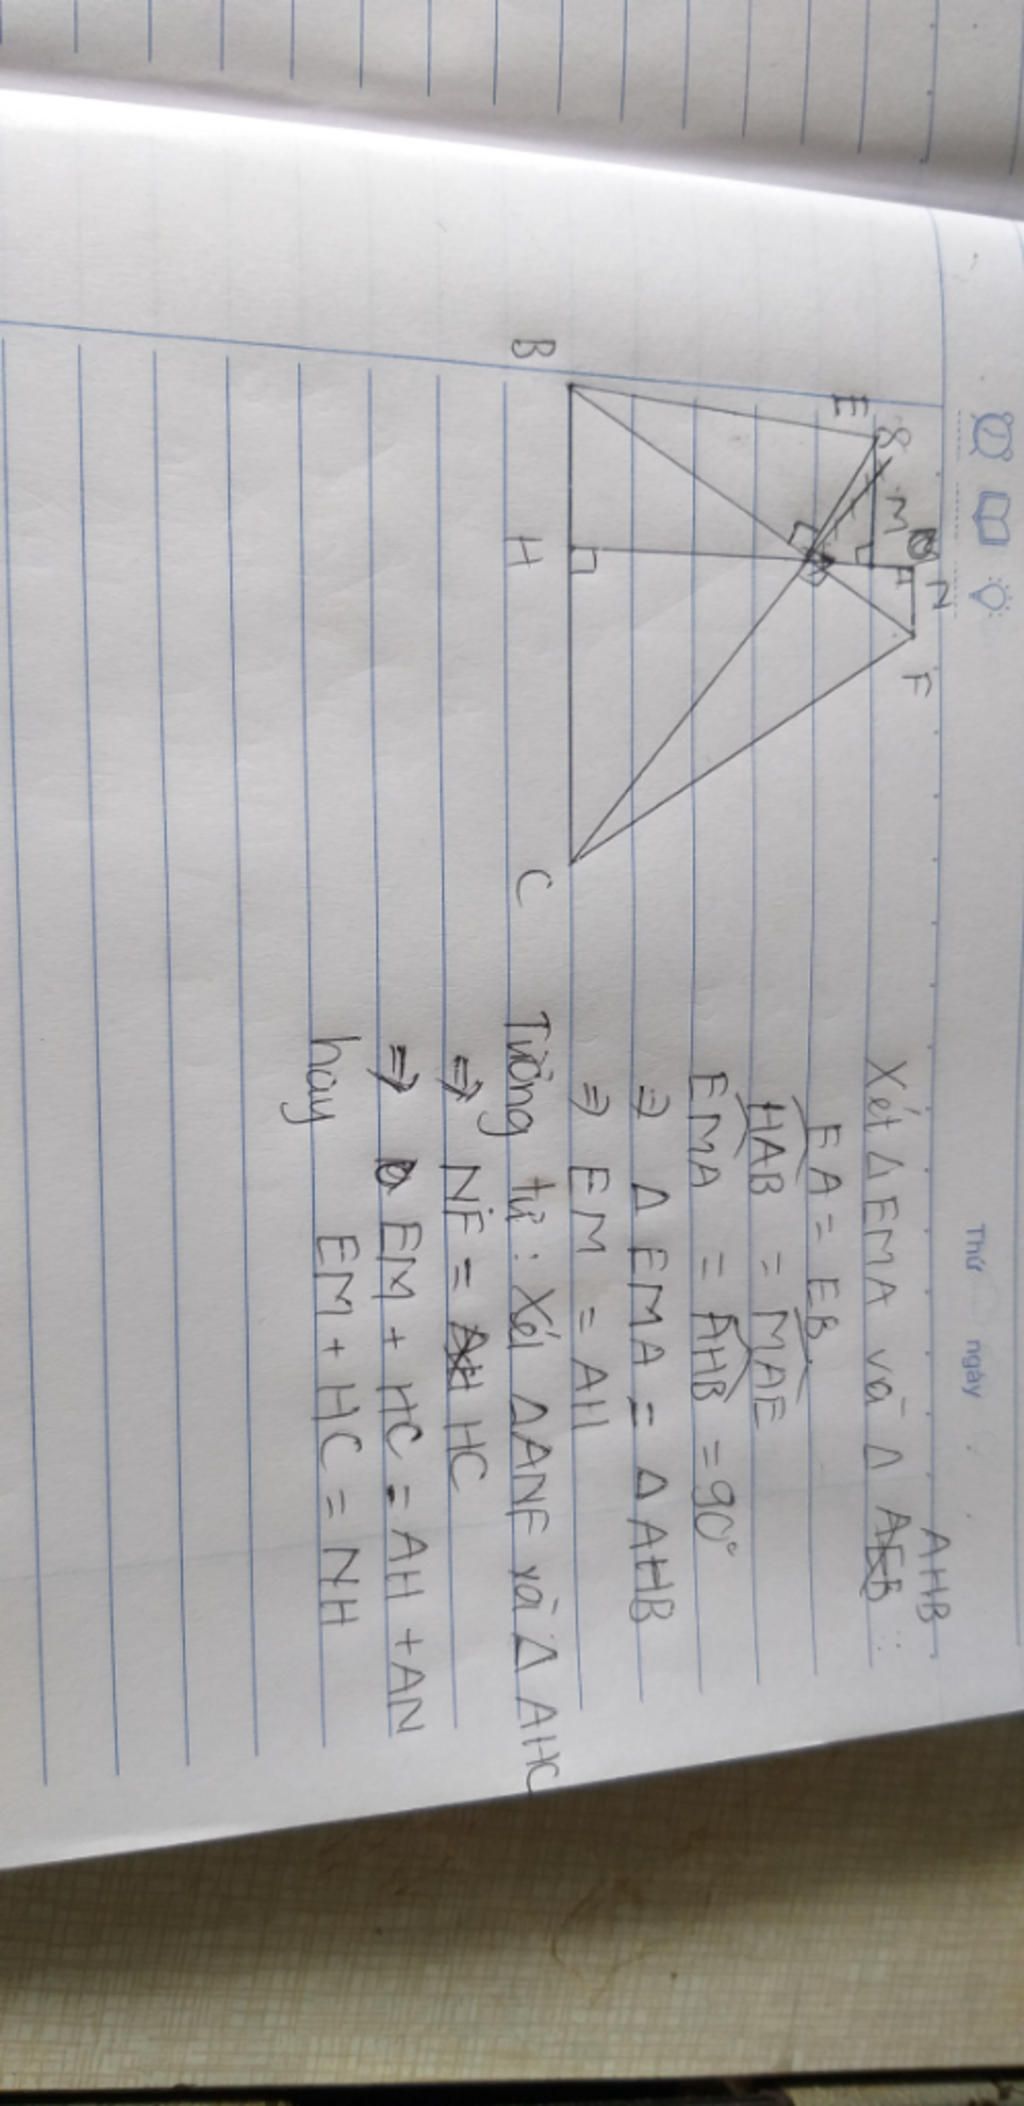 Thứ ngày
B
E
M
N
F
H
C
AHB
Xét Δ EMA và Δ
EA = EB
HAB = MAE
EMA = AHB = 90°
⇒ Δ EMA = Δ AHB
⇒ EM = AH
Tương tự : Xét Δ ANF và Δ AHC
⇒ NF = HC
⇒ EM + HC = AH + AN
hay EM + HC = NH